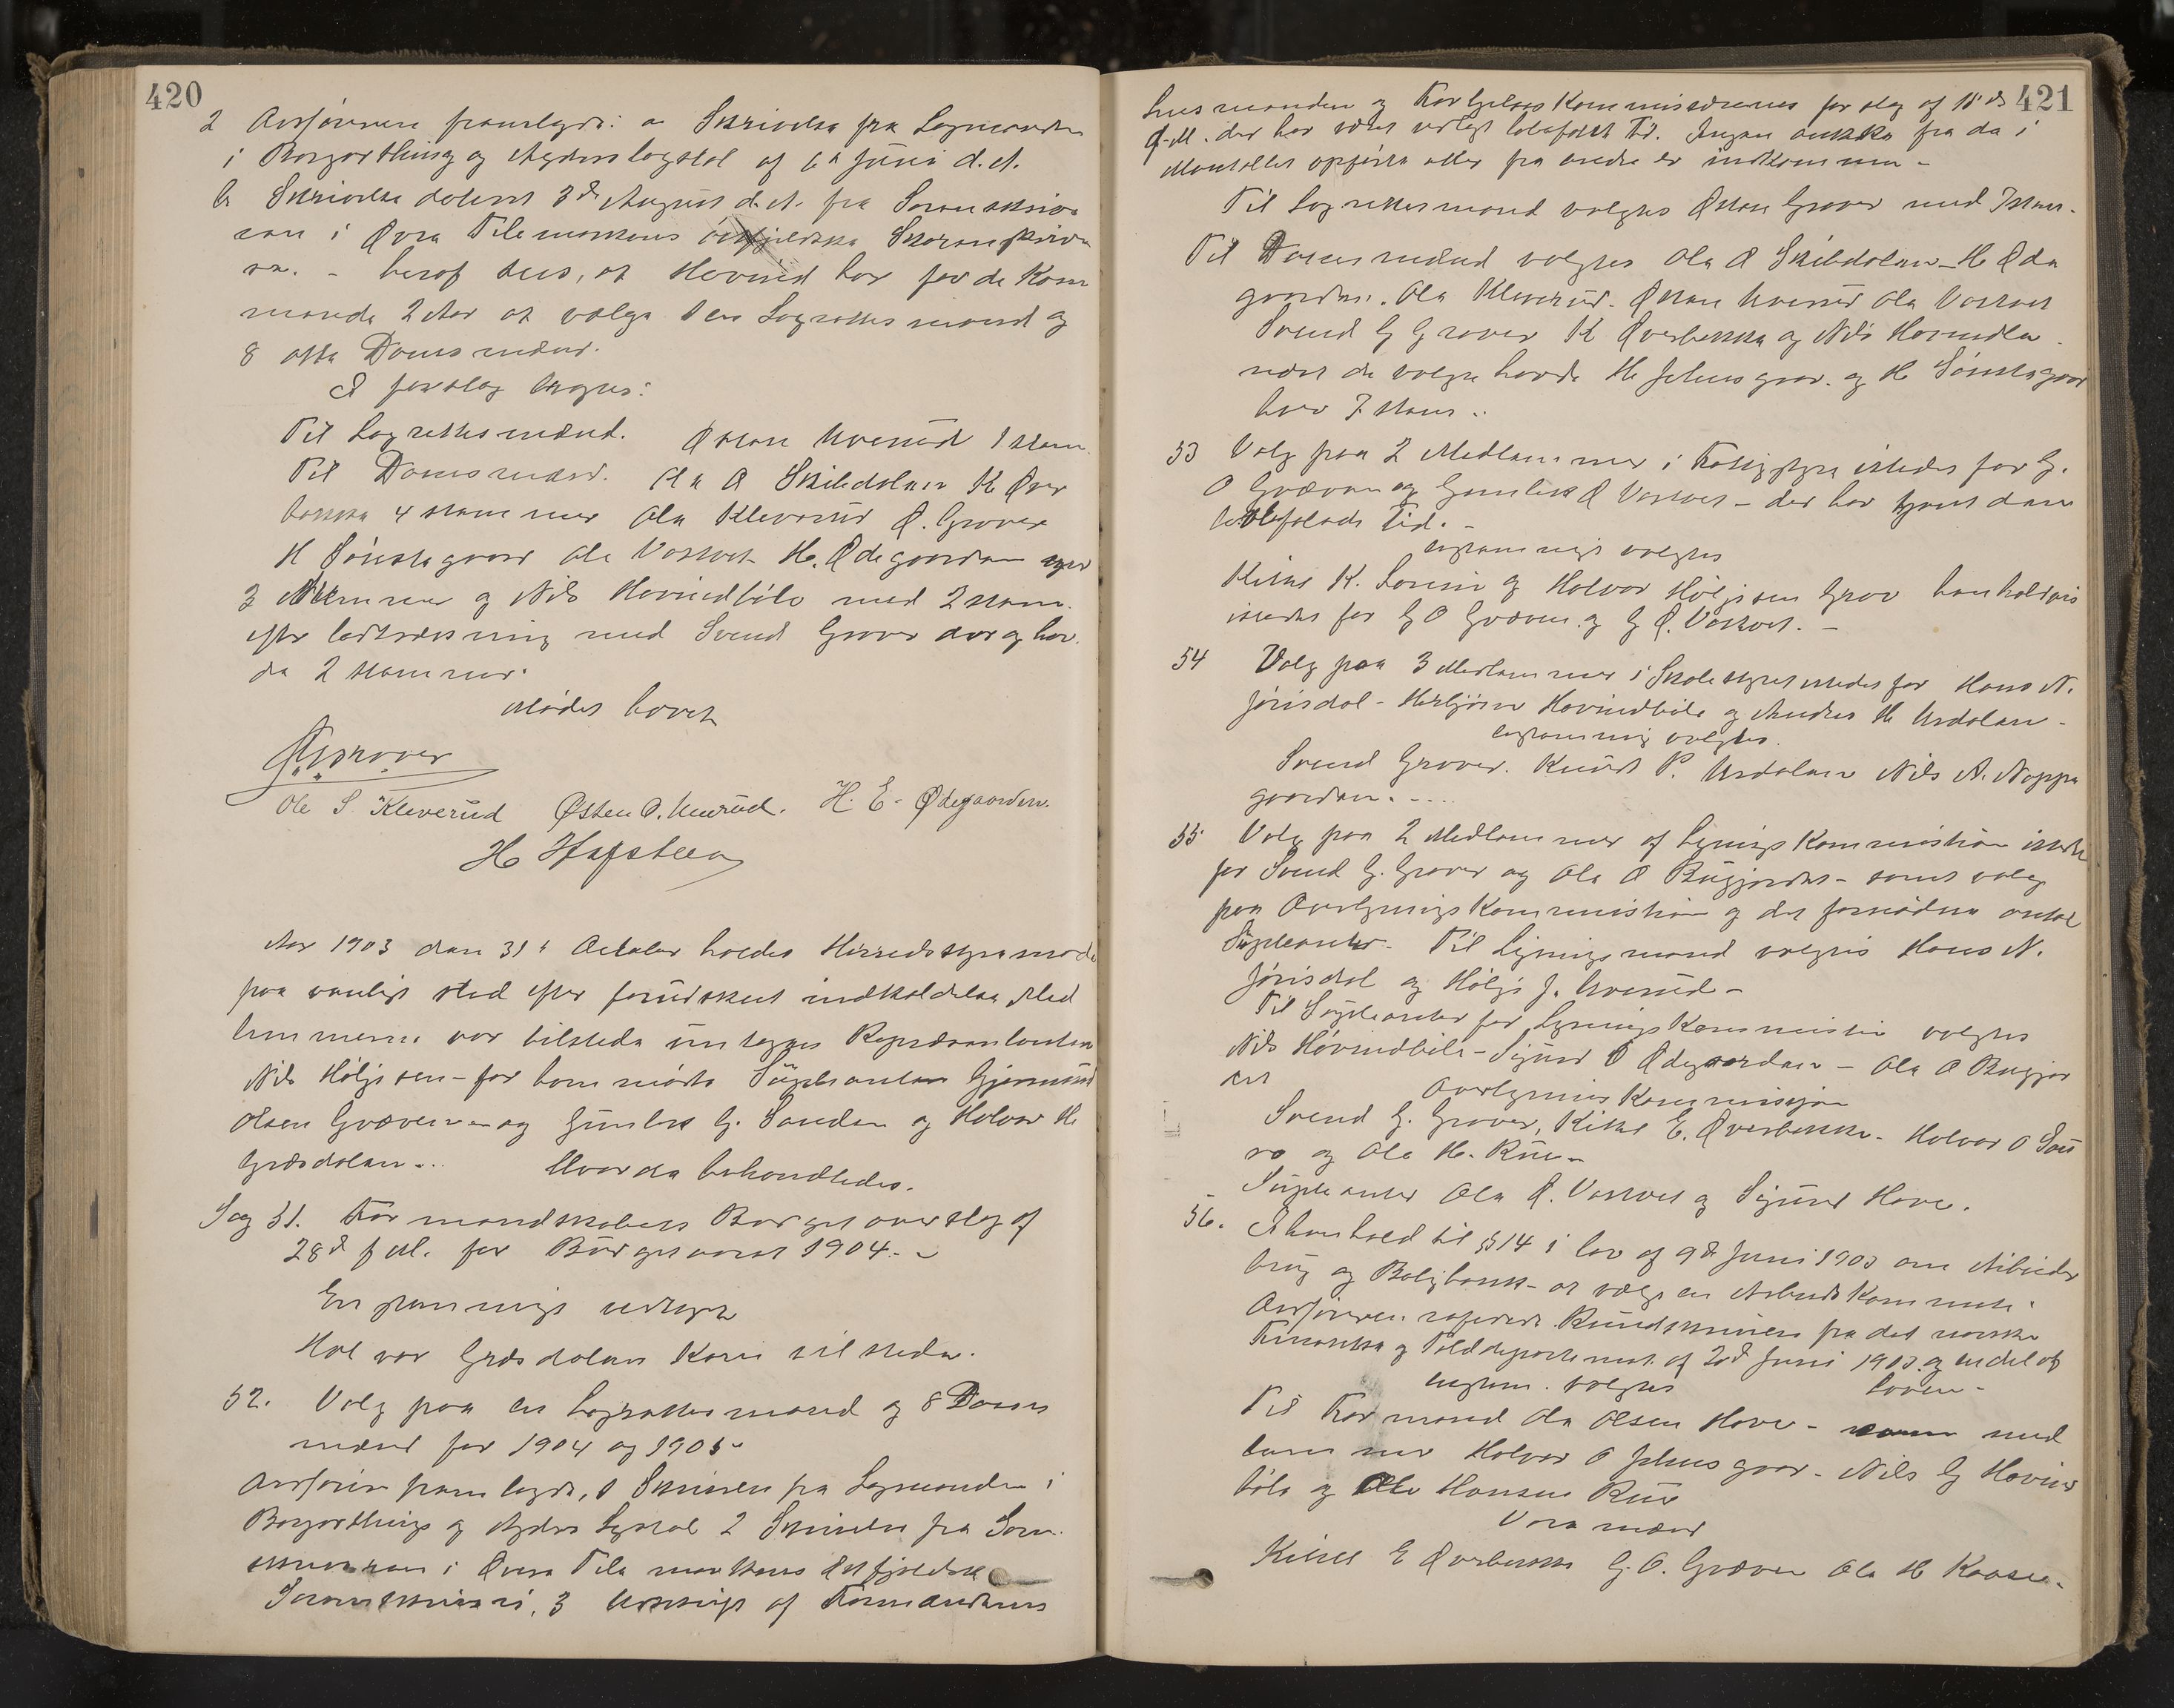 420
2 Ordføreren fremlagde: a Skrivelse fra Lagmanden
i Borgarthing og Agders lagstol af 6te Juni d. A.
b Skrivelse dateret 3de August d. A. fra Sorenskrive
ren i Øvre Telemarkens østfjeldske Sorenskrive
ri. - heraf sees, at Hovind har for de Kom
mende 2 Aar at vælge 1 en Lagrettesmand og
8 otte Domsmænd.
I forslag bragtes:
Til Lagrettesmænd. Østen Uverud 1 stem
Til Domsmænd. Ola O Skibdalen K Øver
bekken 4 stemmer Ola Kleverud O. Grover
H Sønstegaard Ole Vasstvet H. Ødegaarden
3 stemmer og Nils Hovindbøle med 2 stem.
efter lodtrækning med Svend Grover der og hav
de 2 stemmer.
Mødet hævet
Grover
Ole S Kleverud Østen O. Uverud. H. E. Ødegaarden.
H Hafsteen
Aar 1903 den 31te October holdes Herredsstyremøde
paa vanligt sted efter forudskeet indkaldelse, Med
lemmerne var tilstede untagen Repræsentanten
Nils Høljesen - for ham mødte Supleanten Gjermund
Olsen Gvæven og Gunleik G. Sanden og Halvor H.
Græsdalen... Hvor da behandledes.
Sag 51. Formandskabets Budget overslag af
28de f M. for Budgetaaret 1904. -
Enstemmigt vedtaget
Halvor Græsdalen Kom tilstede.
52. Valg paa en Lagrettesmand og 8 Doms
mænd for 1904 og 1905
Ordføren fremlagde, 1 Skrivelse fra Lagmanden i
Borgarthings og Agders Lagstol 2 Skrivelse fra Soren
skriveren i Øvre Telemarkens østfjeldske
Sorenskriveri, 3 Udskrift af Formandens
421
Lensmanden og Forligelses Kommissærenes forslag af 15de
d. M. der har været udlagt lovbefalet Tid. Ingen anke fra de i
Mantallet opførte eller fra andre er indkommen -
Til Lagrettesmand valgtes Østen Grover med 7 stem.
Til Domsmænd valgtes Ola O Skibdalen - H Øde
gaarden. Ola Kleverud. Østen Uverud Ola Vasstvet
Svend G Grover K Øverbekken og Nils Hovindbøle
næst de valgte havde H. Jelmsgaar. og H Sønstegaar
hver 7 stem..
53 Valg paa 2 Medlemmer i Fattigstyre istedet for G.
O Gvæven og Gunleik O Vasstvet - der har tjent den
lovbefalede Tid. -
enstemmigt valgtes
Kittel K. Lonin og Halvor Høljesen Grov henholdsvis
istedet for G O Gvæven. og G O. Vasstvet. -
54 Valg paa 3 Medlemmer i Skolestyret istedet for Hans N.
Jørisdal - Herbjørn Hovindbøle og Anders H Urdalen -
enstemmig valgtes.
Svend Grover. Knudt P. Urdalen Nils A. Noppe
gaarden. ....
55 Valg paa 2 Medlemmer af Ligningskommission istedet
for Svend G. Grover og Ola O Bugjordet - samt valg
paa Overligningskommission og det fornødne antal
Supleanter - Til Ligningsmænd valgtes Hans N.
Jørisdal og Hølje J. Uverud -
Til Supleanter for Ligningskommission valgtes
Nils Hovindbøle - Sigurd O Ødegaarden - Ola O Bugjor
det
Overlignings Kommissjon
Svend G. Grover, Kittel E. Øverbekken - Halvor O
og Ola H. Rue -
Supleanter Ola O. Vasstvet og Sigurd Hove.
56. I henhold til § 14 i lov af 9de Juni 1903 om Arbeider
brug og Boligbank - at vælge en Arbeids Kommite.
Ordføreren refererede Rundskrivelse fra det norske
Finants og Tolddepartement af 20de Juni 1903. og endel af
loven -
enstem. valgtes
Til Formand Ola Olsen Hove - med
lemmer Halvor O Jelmsgaar - Nils G Hovind
bøle og Ole Hansen Rue
Varamænd
Kittel E Øverbekken G. O. Gvæven Ola H Kaasa.